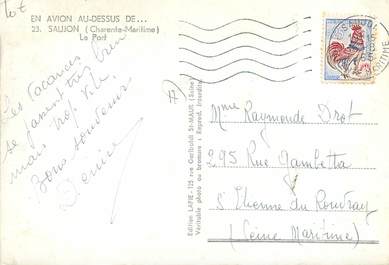 EN AVION AU-DESSUS DE...
23. SAUJON (Charente-Maritime)
Le Port
Les Vacances
se passent très bien
mais trop vite
Bons souvenirs
Denise
Edition LAPIE - 125 rue Garibaldi St-MAUR (Seine)
Véritable photo au bromure - Reprod. interdite
SAUJON
Mme Raymonde Drot
295 Rue Gambetta
St Etienne du Rouvray
(Seine Maritime)